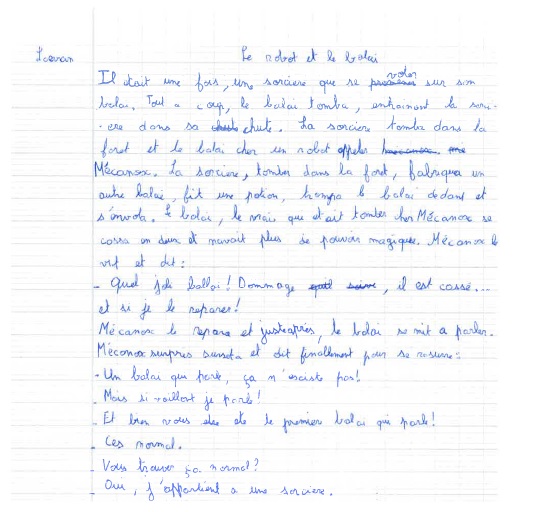 Loevan
Le robot et le balai
Il était une fois, une sorciere que se voler sur son
balai. Tout a coup, le balai tomba, entrainant la sorci-
-ere dans sa chute. La sorciere tomba dans la
foret et le balai cher un robot appeler
Mécanox. La sorciere, tomber dans la foret, fabriqua un
autre balai, fit une potion, trompa le balai dedant et
s'envola. Le balai, le vrai que etait tomber cher Mécanox se
cassa en deux et navait plus de pouvoir magique. Mécanox le
vit et dit :
- Quel joli ballai ! Dommage, il est cassé...
et si je le reparer !
Mécanox le repara et juste après, le balai se mit a parler.
Mécanox surpris sursota et dit finallement pour se rasurer :
- Un balai que parle, ça n'esciste pas !
- Mais si vaillort je parle !
- Et bien vous ete le premier balai qui parle !
- Ces normal.
- Vous trouver ça normal ?
- Oui, j'appartient a une sorciere.